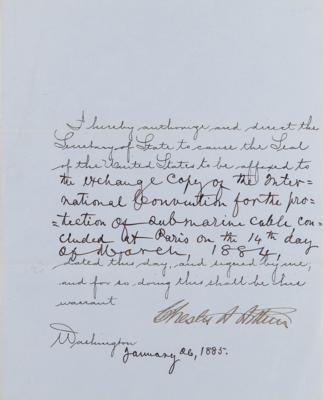 I hereby authorize and direct the
Secretary of State to cause the Seal
of the United States to be affixed to
the exchange copy of the Inter-
=national Convention for the pro-
=tection of submarine cable con-
cluded at Paris on the 14th day
of March 1884,
dated this day, and signed by me;
and for so doing this shall be his
warrant
Chester A Arthur
Washington
January 26, 1885.